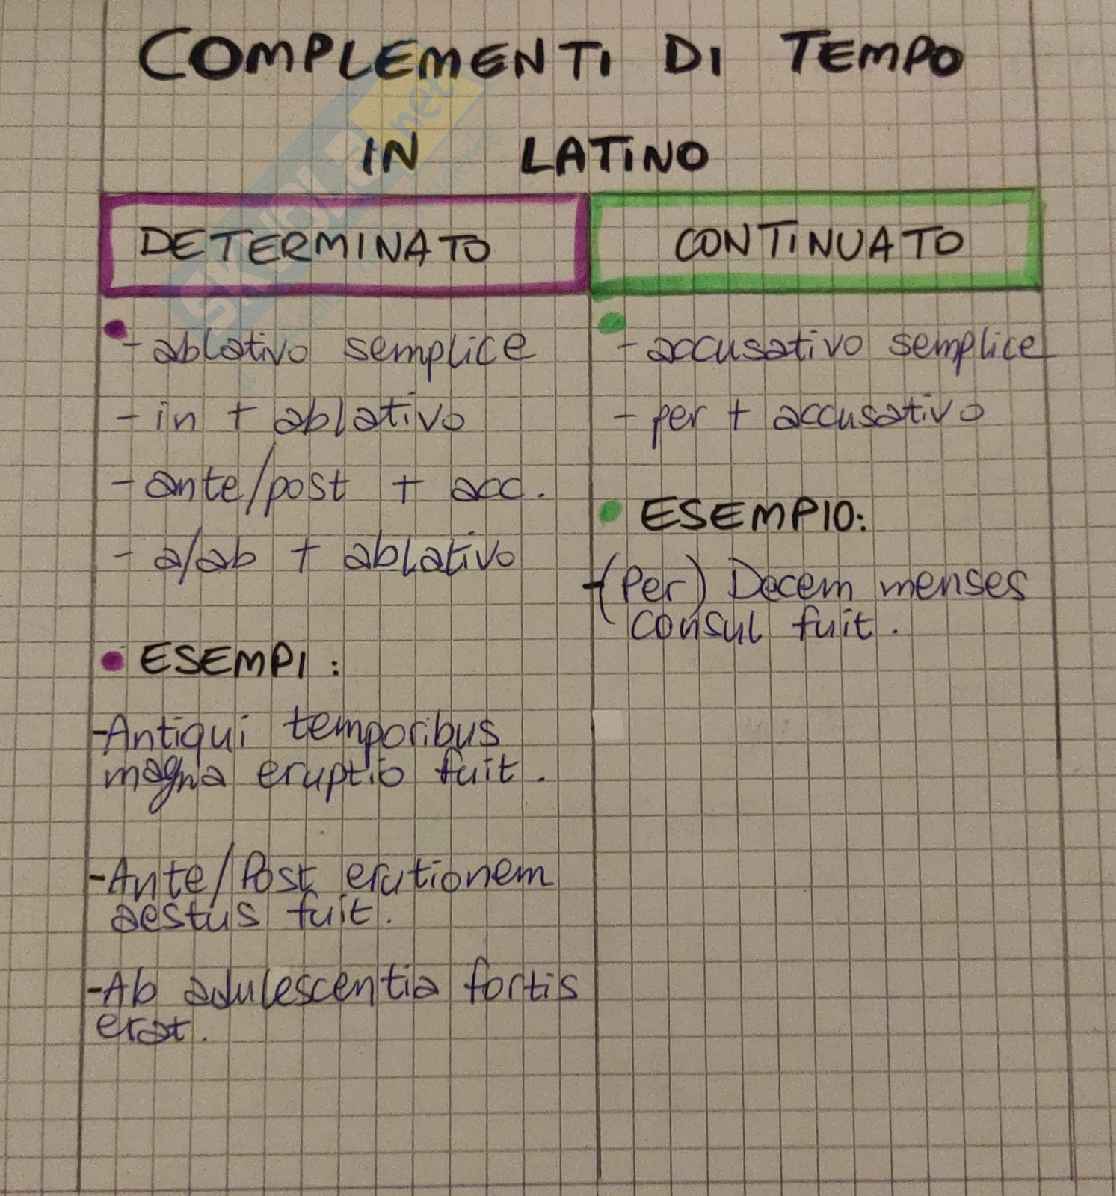 COMPLEMENTI DI TEMPO
IN LATINO
DETERMINATO
- ablativo semplice
- in + ablativo
- ante/post + acc.
- a/ab + ablativo
ESEMPI:
- Antiqui temporibus
magna eruptio fuit.
- Ante/Post erutionem
aestus fuit.
- Ab adulescentia fortis
erat.
CONTINUATO
- accusativo semplice
- per + accusativo
ESEMPIO:
- (Per) Decem menses
consul fuit.
SKUOLA.net